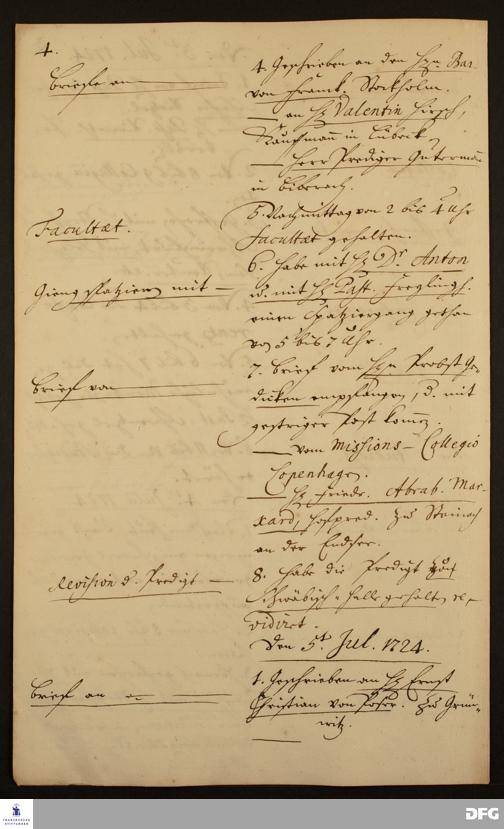 4.
Briefe an
4. Geschrieben an den Hrn. Bar.
von Franck. Stockholm.
— an H. Valentin Hirsch,
Kauffmann in Lübeck,
— Herr Prediger Gutermann
in Biberach.
Facultæt.
5. Nachmittag von 2 bis 4 Uhr
Facultæt gehalten.
Gieng spatziren mit —
6. habe mit H. Dr. Anton
u. mit H. Past. Freylingh.
einen Spatziergang gethan
von 5 bis 7 Uhr.
Brief von
7. Brief vom Hrn Probst Ge-
dicken empfangen, d. mit
gestriger Post kommen.
— vom Missions-Collegio
Copenhagen.
— H. Friedr. Abrah. Mar-
kard, Hofpred. zu
an der
Revision d. Predigt —
8. habe die Predigt
Schwäbisch-Hall gehalten re-
vidiret.
Den 5t. Jul. 1724.
Brief an
1. Geschrieben an H. Ernst
Christian von Poser. zu Grün-
witz.
FRANCKESCHE STIFTUNGEN
DFG